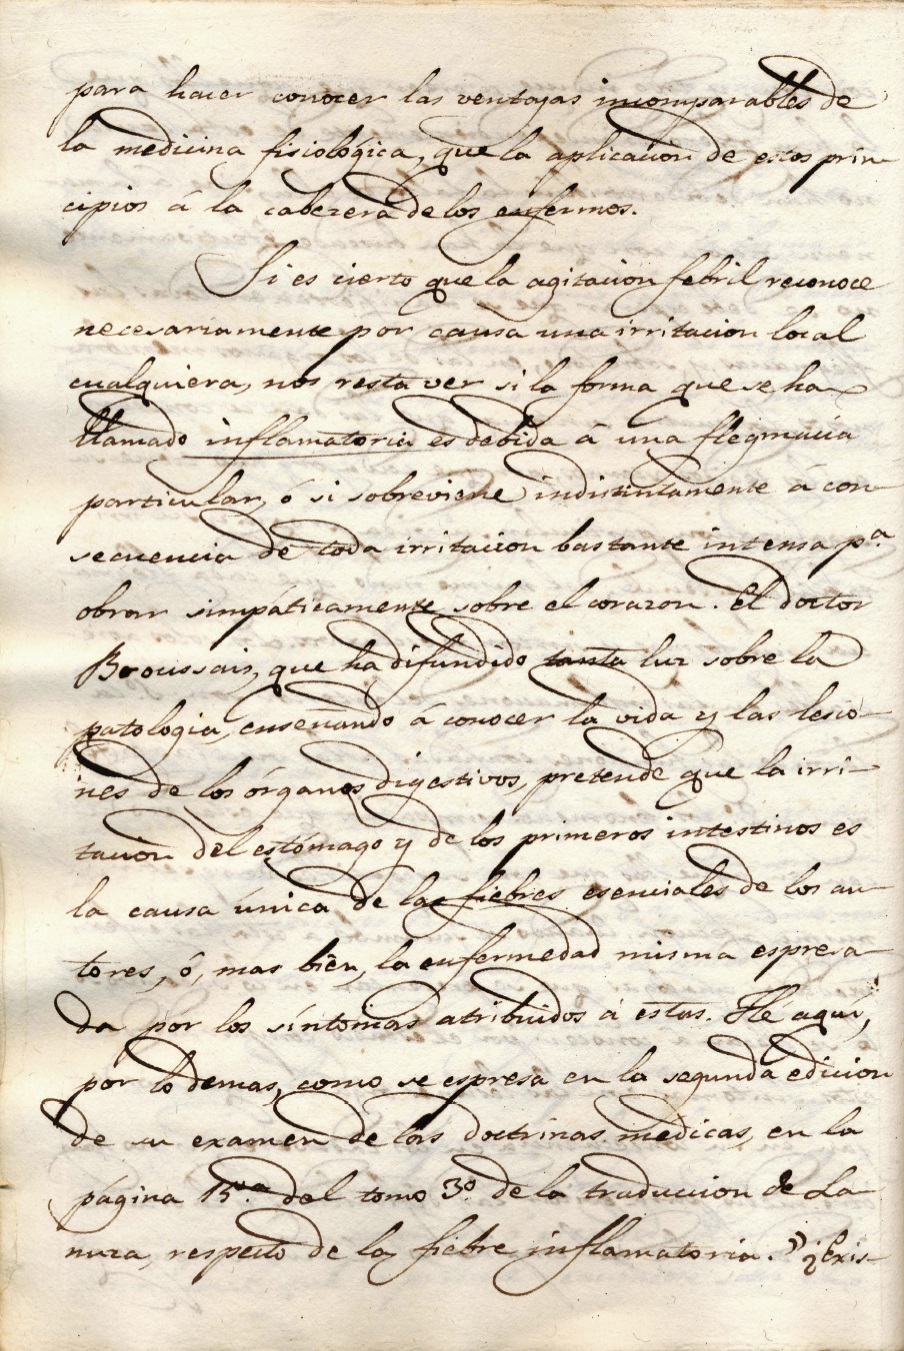 para hacer conocer las ventajas incomparables de
la medicina fisiológica, que la aplicacion de estos prin-
cipios á la cabezera de los enfermos.
Si es cierto que la agitacion febril reconoce
necesariamente por causa una irritacion local
cualquiera, nos resta ver si la forma que se ha
llamado inflamatoria es debida á una flegmacia
particular, ó si sobreviene indistintamente á con-
secuencia de toda irritacion bastante intensa pa.
obrar simpáticamente sobre el corazon. El doctor
Broussais, que ha difundido tanta luz sobre la
patologia, enseñando á conocer la vida y las lesio-
nes de los órganos digestivos, pretende que la irri-
tacion del estómago y de los primeros intestinos es
la causa única de las fiebres esenciales de los au-
tores, ó, mas bien, la enfermedad misma espresa-
da por los síntomas atribuidos á estas. He aqui,
por lo demas, como se espresa en la segunda edicion
de su examen de las doctrinas medicas, en la
página 15.. del tomo 3º. de la traduccion de La-
nuza, respecto de la fiebre inflamatoria. " ¿Exis-